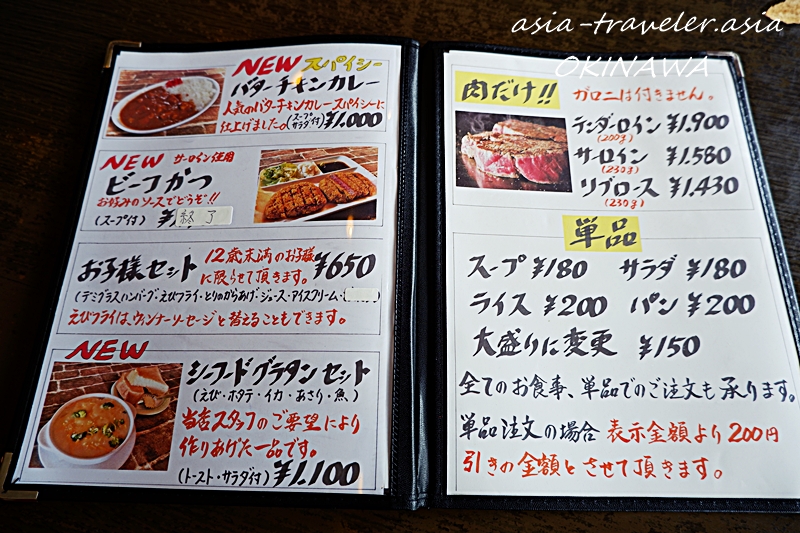 asia-traveler.asia
OKINAWA
NEW スパイシー
バターチキンカレー
人気のバターチキンカレースパイシーに
仕上げました。(スープ サラダ付) ¥1,000
NEW サーロイン使用
ビーフかつ
お好みのソースでどうぞ!!
(スープ付) 終了
お子様セット 12歳未満のお子様に限らせて頂きます。 ¥650
(デミグラスハンバーグ・えびフライ・とりのからあげ・ジュース・アイスクリーム・
えびフライは、ウィンナーソーセージと替えることもできます。
NEW
シーフードグラタンセット
(えび・ホタテ・イカ・あさり・魚)
当店スタッフのご要望により
作りあげた一品です。
(トースト・サラダ付) ¥1,100
肉だけ!! ガロニは付きません。
テンダーロイン ¥1.900
(200g)
サーロイン ¥1.580
(230g)
リブロース ¥1.430
(230g)
単品
スープ ¥180 サラダ ¥180
ライス ¥200 パン ¥200
大盛りに変更 ¥150
全てのお食事、単品でのご注文も承ります。
単品注文の場合 表示金額より200円
引きの金額とさせて頂きます。